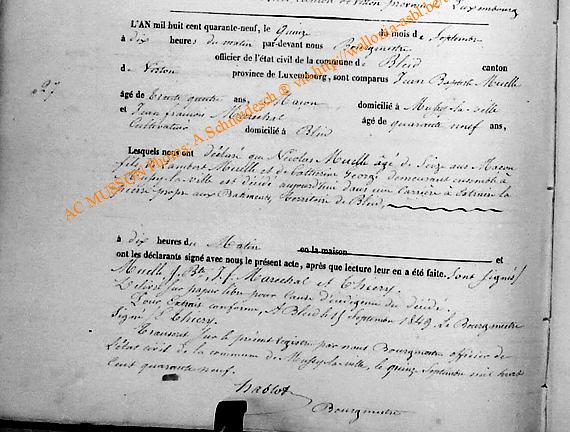 canton de Virton province Luxembourg
L'AN mil huit cent quarante-neuf, le Quinze du mois de Septembre
à dix heures du matin par-devant nous Bourgmestre
officier de l'état civil de la commune de Bleid canton
de Virton province de Luxembourg, sont comparus Jean Baptiste Muelle
âgé de trente quatre ans, Macon domicilié à Mussy-la-ville
et Jean François Maréchal âgé de quarante neuf ans,
Cultivateur domicilié à Bleid
Lesquels nous ont déclaré que Nicolas Muelle âgé de Seize ans Macon
fils de Lambert Muelle et de Catherine Georgé demeurant ensemble à
Mussy-la-ville est décédé aujourd'hui dans une Carrière à extraire la
pierre propre aux Batiments, territoire de Bleid,
à dix heures du Matin en la maison et
ont les déclarants signé avec nous le présent acte, après que lecture leur en a été faite. Sont Signés
Muelle J. Bte, J. f. Marechal et Thiery.
Délivré sur papier libre pour cause d'indigence du décédé.
Pour Extrait conforme, A Bleid le 15 Septembre 1849. Le Bourgmestre
Signé Thiery.
Transcrit sur le présent registre par nous Bourgmestre officier de
l'état civil de la commune de Mussy-la-ville, le quinze Septembre mil huit
cent quarante neuf.
Bourgmestre
AC MUSSON Photos: A.Schmidesch ® via http://wallonia-asbl.be/